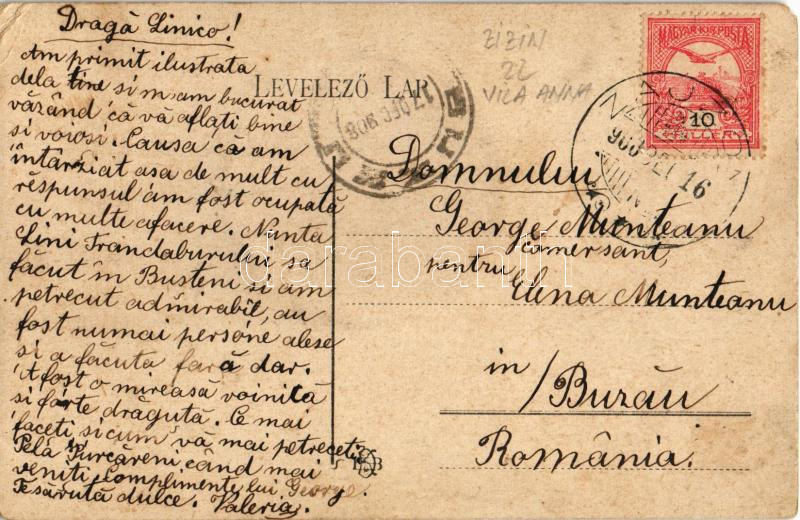 Dragă Linico!
Am primit ilustrata
dela tine si m am bucurat
văzând că vă aflati bine
si voiosi. Causa ca am
întârziat asa de mult cu
rëspunsul am fost ocupată
cu multe afacere. Nunta
Lini Trandaburului sa
făcut în Busteni si am
petrecut admirabil, au
fost numai persóne alese
si a făcuta fară dar.
A fost o mireasă voinită
si fórte drăgută. Ce mai
faceti si cum vă mai petreceti
Pela Purcăreni când mai
veniti Complimente lui George.
Te săruta dulce. Valeria.
LEVELEZŐ LAP
17 DEC 908
BUZEU
ZIZIN
22
VILA ANNA
MAGYAR KIR. POSTA
10
FILLÉR
16
Domnului
George Munteanu
comersant,
pentru
Elena Munteanu
in
/Buzău
România.
darabanth